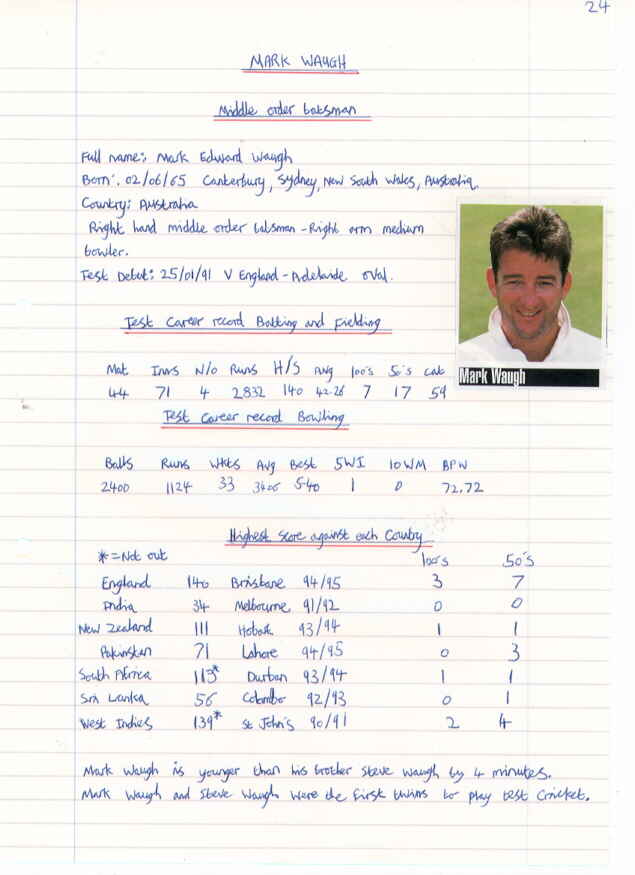 24
MARK WAUGH
Middle order batsman
Full name:, Mark Edward Waugh
Born:. 02/06/65 Canterbury, Sydney, New South Wales, Australia.
Country: Australia
Right hand middle order batsman - Right arm medium
bowler.
Test Debut: 25/01/91 V England - Adelaide oval.
Test Career record Batting and Fielding
Mat Inns N/O Runs H/S Avg 100's 50's cat
44 71 4 2832 140 42.26 7 17 59
Mark Waugh
Test Career record Bowling
Balls Runs Wkts Avg Best 5WI 10WM BPW
2400 1124 33 34.06 5-40 1 0 72.72
Highest score against each Country
*=Not out 100's 50's
England 140 Brisbane 94/95 3 7
India 34 Melbourne 91/92 0 0
New Zealand 111 Hobart 93/94 1 1
Pakistan 71 Lahore 94/95 0 3
South Africa 113* Durban 93/94 1 1
Sri Lanka 56 Colombo 92/93 0 1
West Indies 139* St John's 90/91 2 4
Mark Waugh is younger than his brother Steve Waugh by 4 minutes.
Mark Waugh and Steve Waugh were the first twins to play test Cricket.